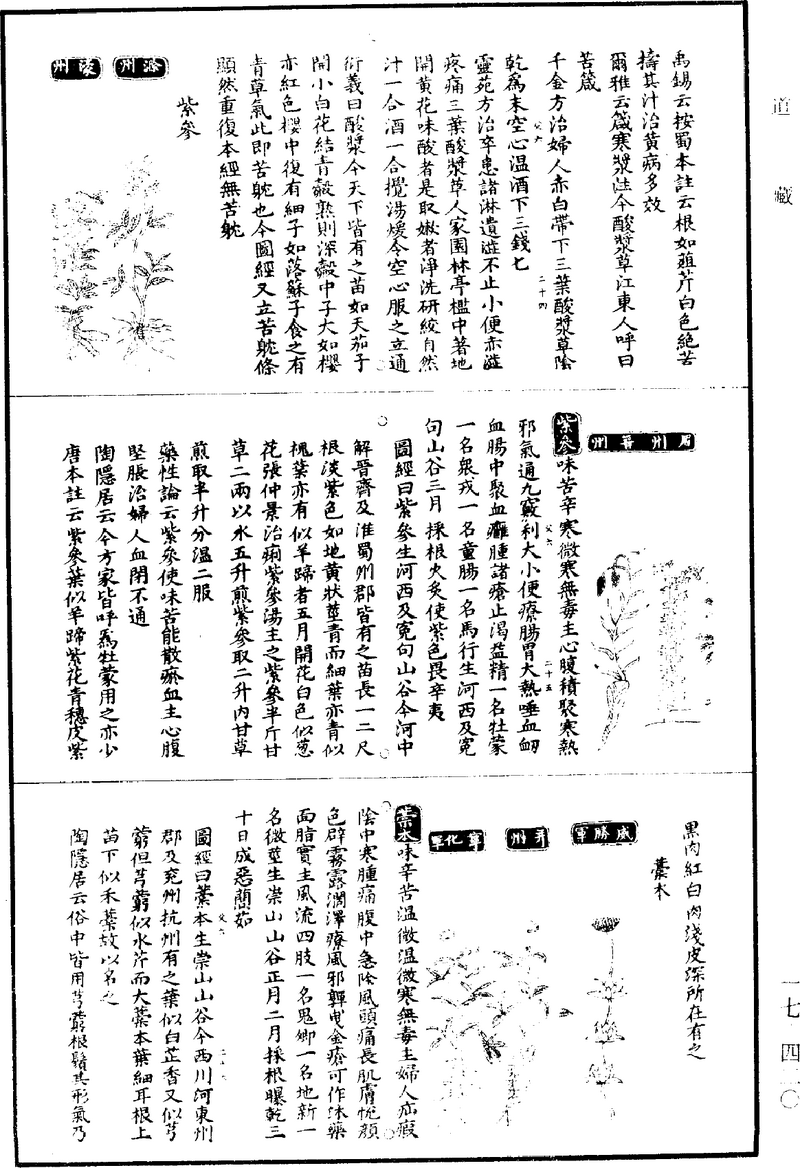 道藏
禹錫云按蜀本註云根如葅芹白色絶苦
擣其汁治黃病多效
爾雅云葴寒漿注今酸漿草江東人呼曰
苦葴
千金方治婦人赤白帶下三葉酸漿草陰
乾爲末空心温酒下三錢匕
靈苑方治卒患諸淋遺瀝不止小便赤澁
疼痛三葉酸漿草人家園林亭檻中著地
開黃花味酸者是取嫩者淨洗研絞自然
汁一合酒一合攪湯煖令空心服之立通
衍義曰酸漿今天下皆有之苗如天茄子
開小白花結青殼熟則深紅殼中子大如櫻
亦紅色櫻中復有細子如落蘇子食之有
青草氣此即苦躭也今圖經又立苦躭條
顯然重復本經無苦躭
紫參
滁州
濠州
晉州
眉州
紫參味苦辛寒微寒無毒主心腹積聚寒熱
邪氣通九竅利大小便療腸胃大熱唾血衂
血腸中聚血癰腫諸瘡止渴益精一名牡蒙
一名衆戎一名童腸一名馬行生河西及寃
句山谷三月採根火炙使紫色畏辛夷
圖經曰紫參生河西及寃句山谷今河中
解晉齊及淮蜀州郡皆有之苗長一二尺
根淡紫色如地黃狀莖青而細葉亦青似
槐葉亦有似羊蹄者五月開花白色似葱
花張仲景治痢紫參湯主之紫參半斤甘
草二兩以水五升煎紫參取二升內甘草
煎取半升分温二服
藥性論云紫參使味苦能散瘀血主心腹
堅脹治婦人血閉不通
陶隱居云今方家皆呼爲牡蒙用之亦少
唐本註云紫參葉似羊蹄紫花青穗皮紫
黑肉紅白肉淺皮深所在有之
藁本
威勝軍
并州
寧化軍
藁本味辛苦温微温微寒無毒主婦人疝瘕
陰中寒腫痛腹中急除風頭痛長肌膚悅顏
色辟霧露潤澤療風邪嚲曳金瘡可作沐藥
面脂實主風流四肢一名鬼卿一名地新一
名微莖生崇山山谷正月二月採根曝乾三
十日成惡䕡茹
圖經曰藁本生崇山山谷今西川河東州
郡及兖州杭州有之葉似白芷香又似芎
藭但芎藭似水芹而大藁本葉細耳根上
苗下似禾藁故以名之
陶隱居云俗中皆用芎藭根鬚其形氣乃
一七·四二〇